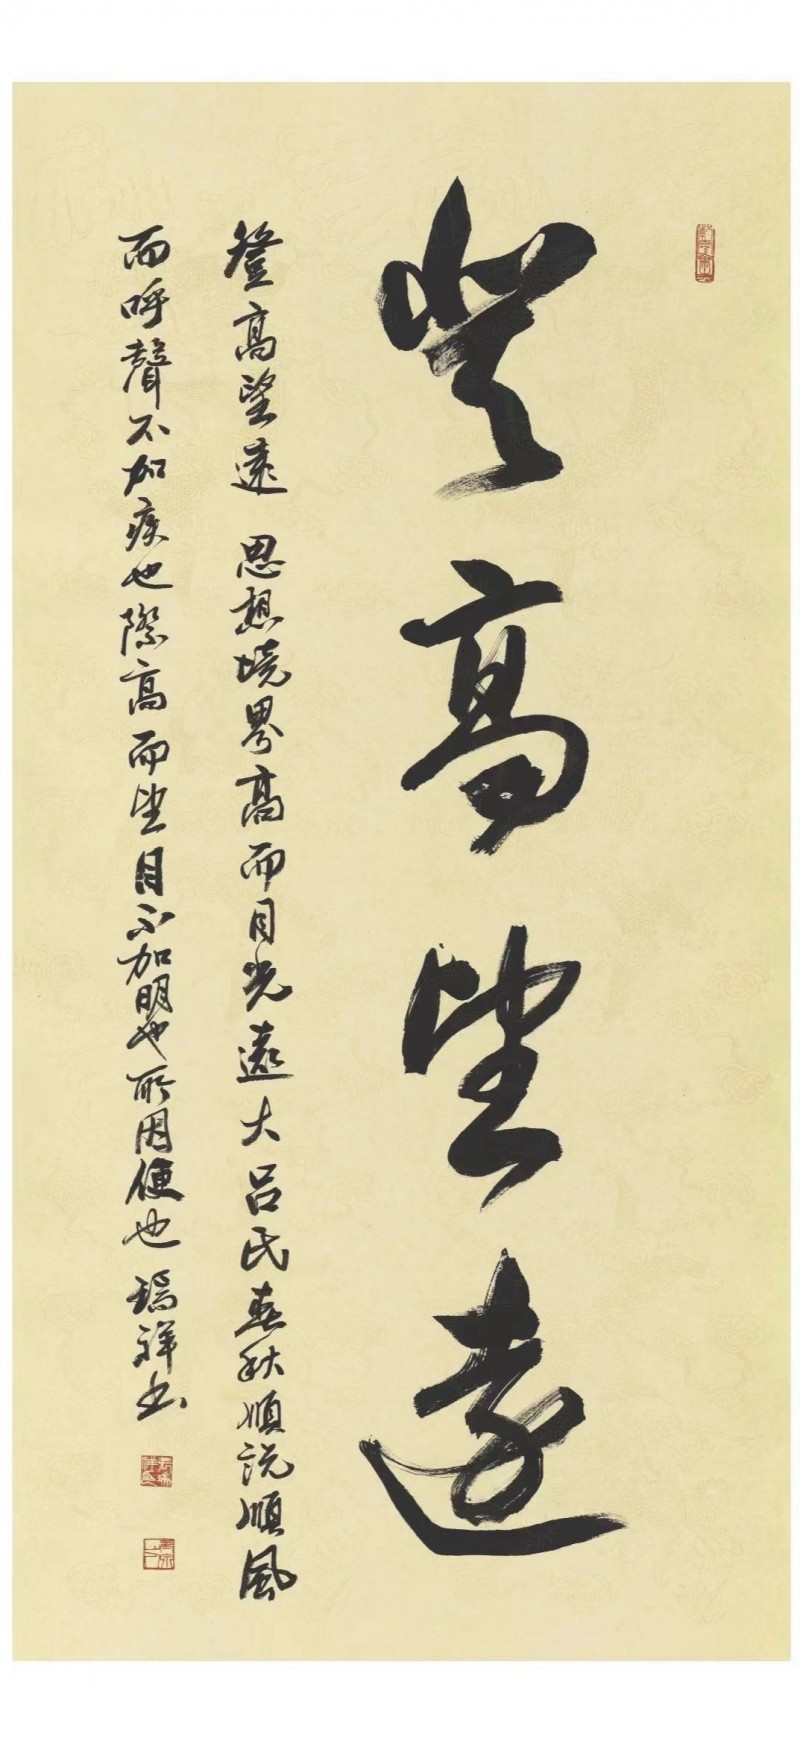 登高望遠
登高望遠 思想境界高而目光遠大吕氏春秋順説順風
而呼聲不加疾也際高而望目不加明也所因便也 瑞祥书